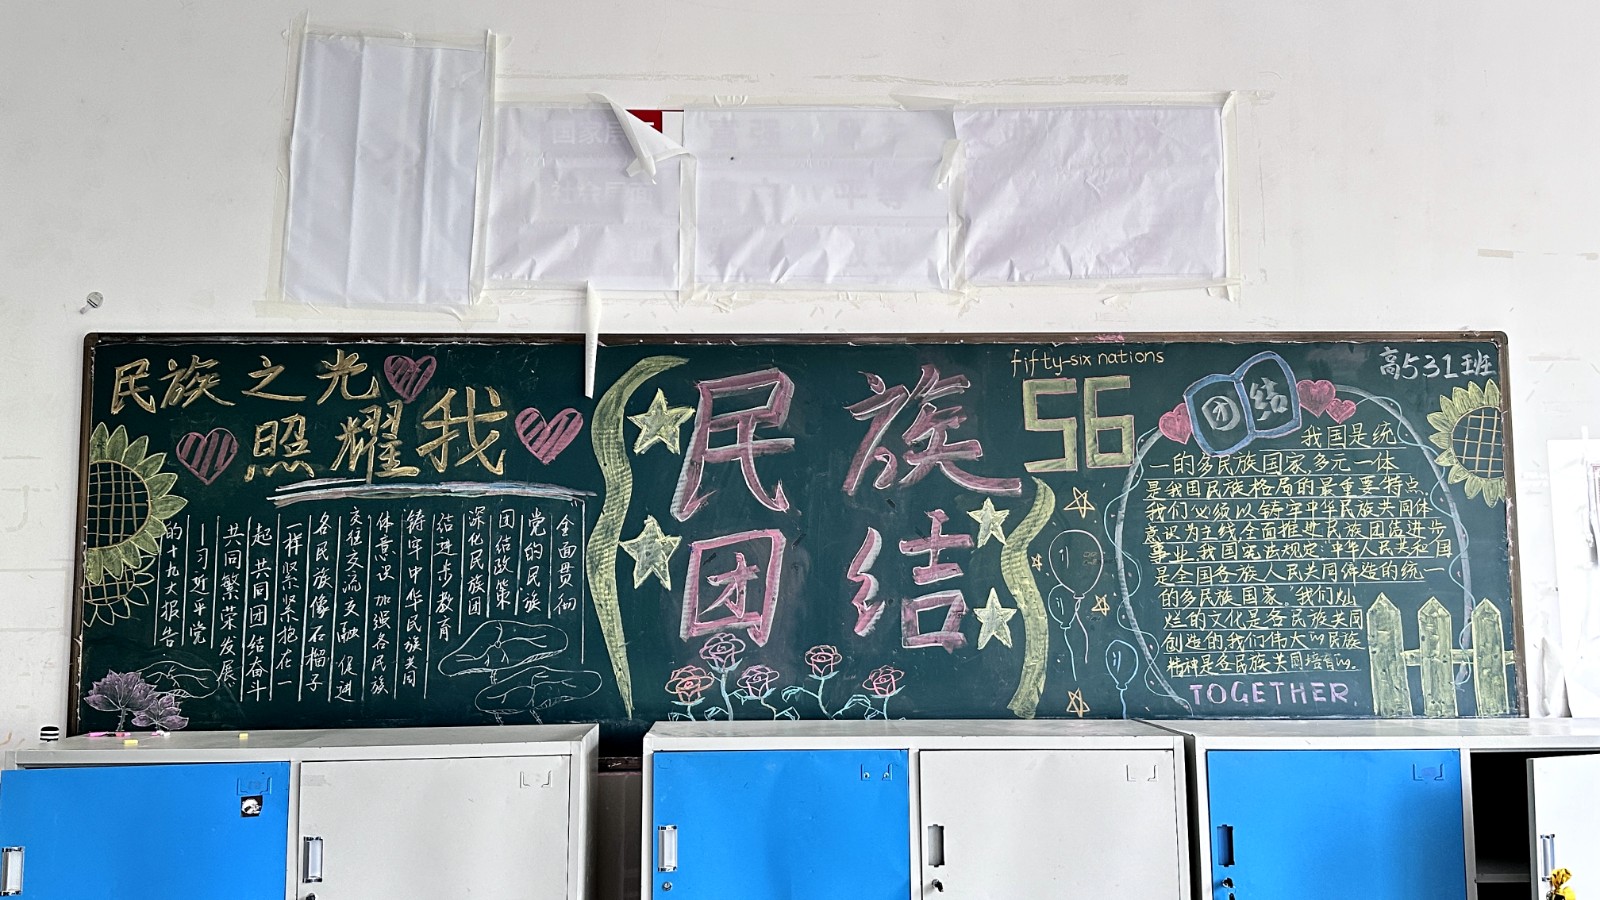 民族之光
照耀我
"全面贯彻
党的民族
团结政策
深化民族团
结进步教育
铸牢中华民族共同
体意识 加强各民族
交往交流交融 促进
各民族像石榴子
一样紧紧抱在一
起 共同团结奋斗
共同繁荣发展"
—习近平党
的十九大报告
民族
团结
fifty-six nations
56
团结
高531班
我国是统
一的多民族国家,多元一体
是我国民族格局的最重要特点.
我们必须以铸牢中华民族共同体
意识为主线,全面推进民族团结进步
事业,我国宪法规定:"中华人民共和国
是全国各族人民共同缔造的统一
的多民族国家."我们灿
烂的文化是各民族共同
创造的,我们伟大的民族
精神是各民族共同培育的.
TOGETHER.